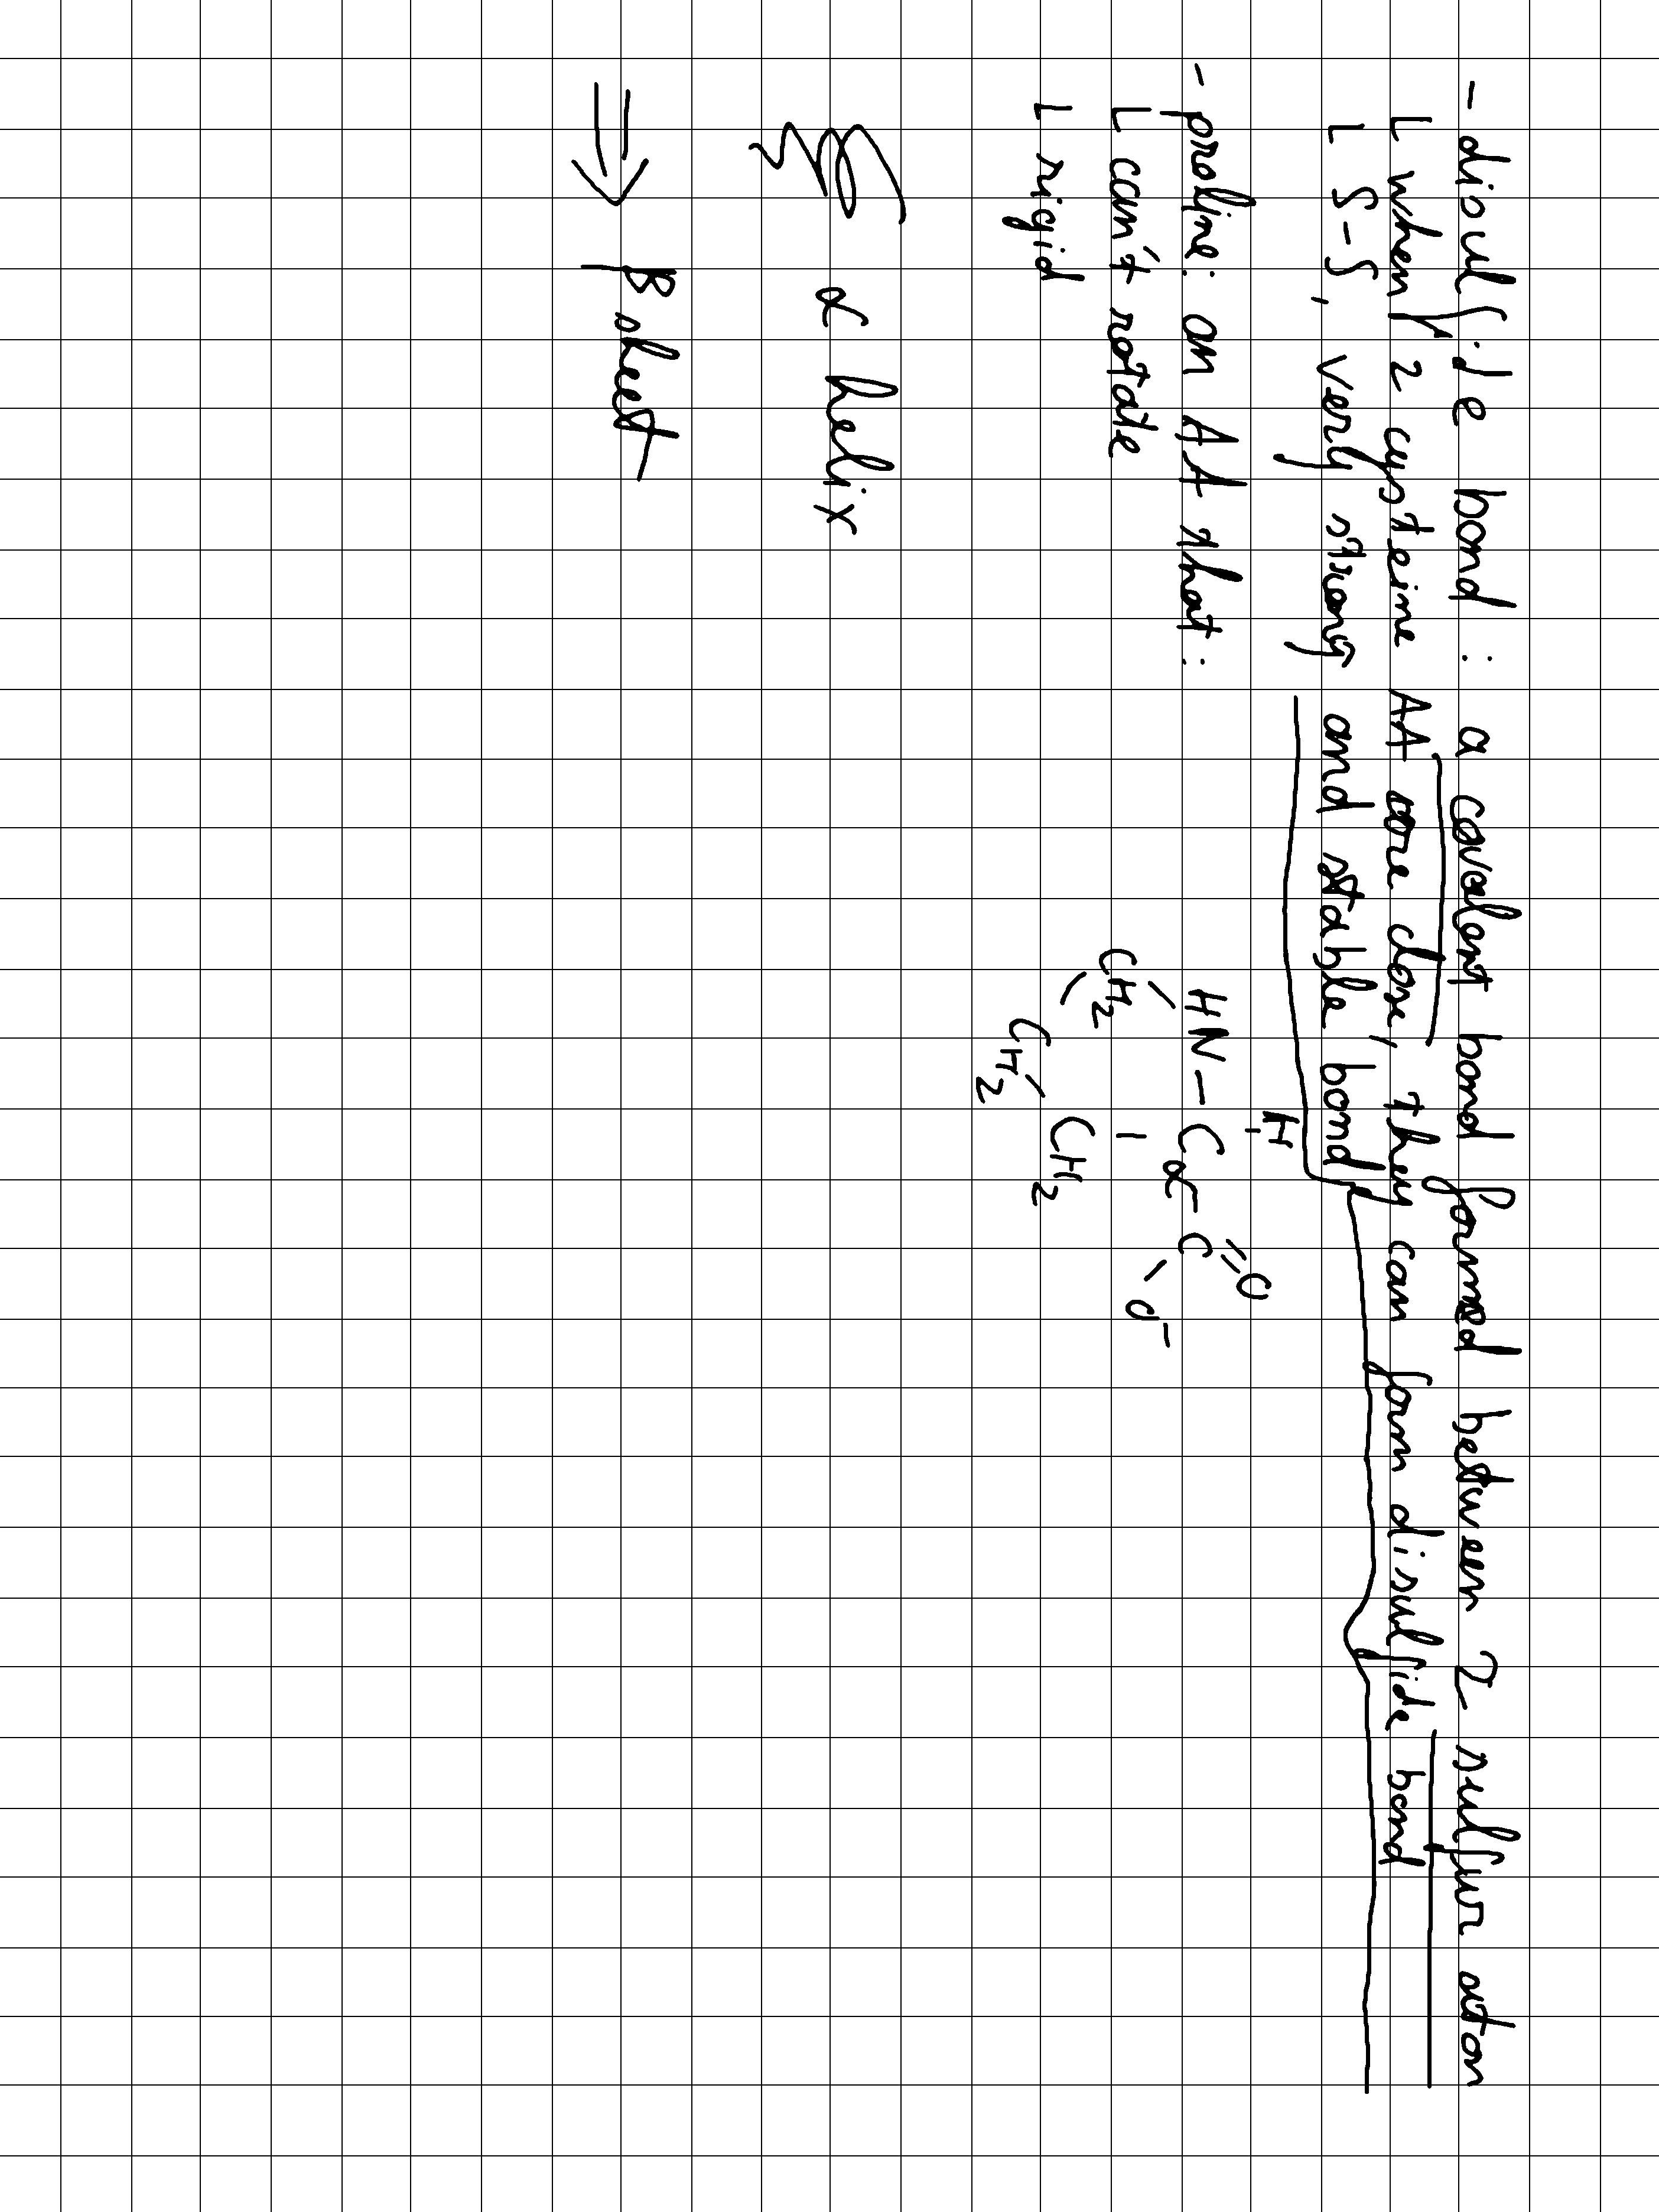 - disulfide bond : a covalent bond formed between 2 sulfur atom
L when 2 cysteine AA are close, they can form disulfide bond
L S-S, very strong and stable bond
- proline: an AA that:
L can't rotate
L rigid
H
HN - Cα - C = O
O-
CH2
CH2
CH2
α helix
β sheet